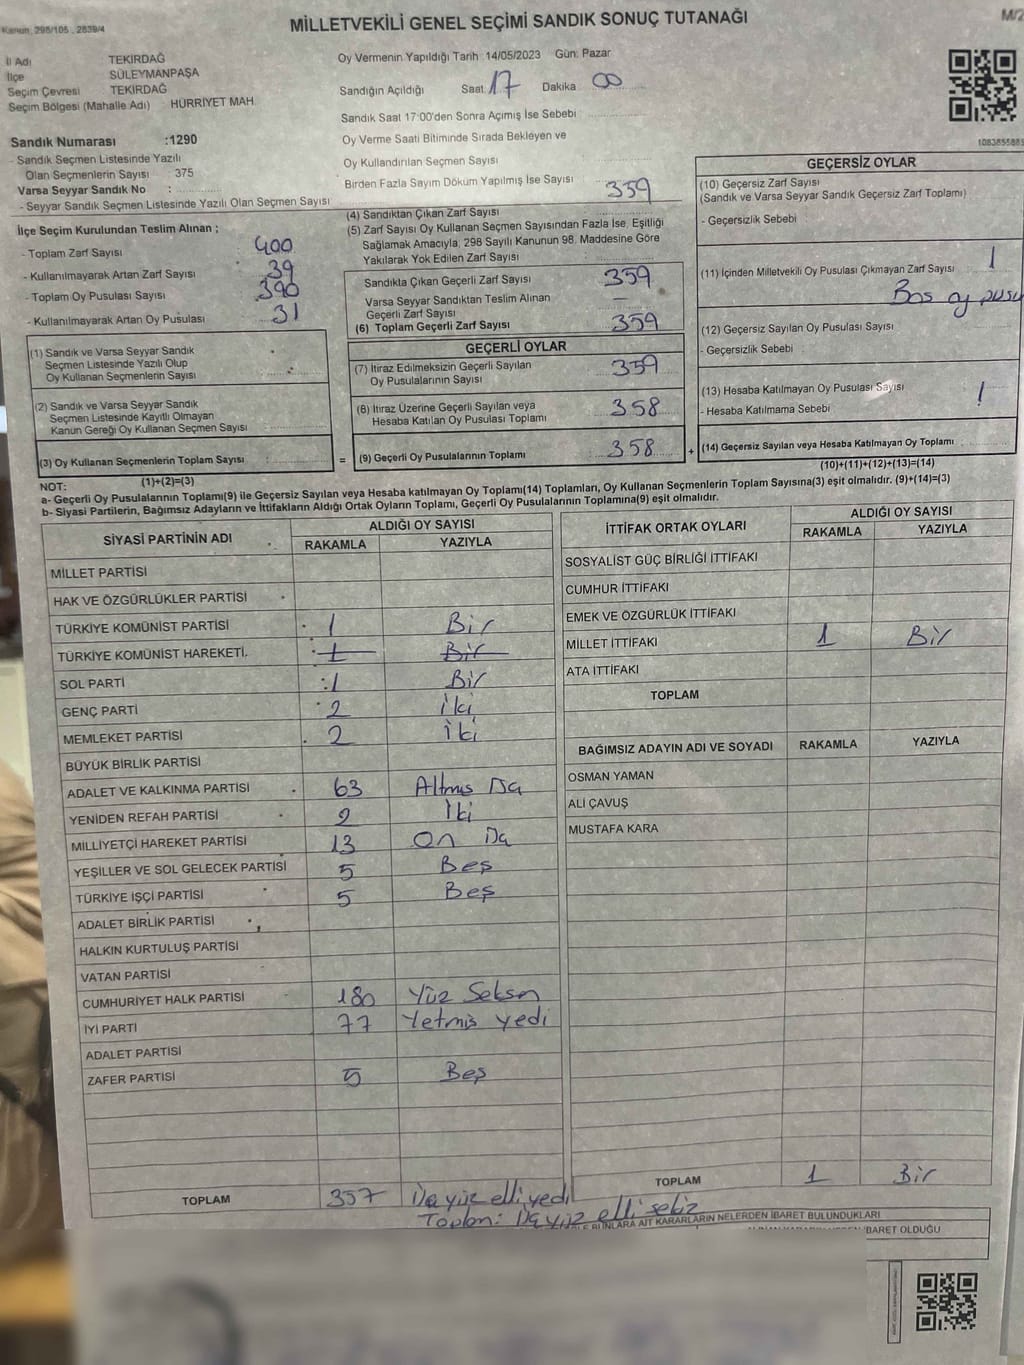 Kanun: 298/105 , 2839/4
MİLLETVEKİLİ GENEL SEÇİMİ SANDIK SONUÇ TUTANAĞI
M/2
İl Adı TEKİRDAĞ
İlçe SÜLEYMANPAŞA
Seçim Çevresi TEKİRDAĞ
Seçim Bölgesi (Mahalle Adı) HÜRRİYET MAH.
Sandık Numarası :1290
- Sandık Seçmen Listesinde Yazılı
Olan Seçmenlerin Sayısı : 375
Varsa Seyyar Sandık No :
- Seyyar Sandık Seçmen Listesinde Yazılı Olan Seçmen Sayısı
Oy Vermenin Yapıldığı Tarih 14/05/2023 Gün: Pazar
Sandığın Açıldığı Saat 17 Dakika 00
Sandık Saat 17:00'den Sonra Açımış İse Sebebi
Oy Verme Saati Bitiminde Sırada Bekleyen ve
Oy Kullandırılan Seçmen Sayısı
Birden Fazla Sayım Döküm Yapılmış İse Sayısı
İlçe Seçim Kurulundan Teslim Alınan ;
- Toplam Zarf Sayısı 400
- Kullanılmayarak Artan Zarf Sayısı 39
- Toplam Oy Pusulası Sayısı 390
- Kullanılmayarak Artan Oy Pusulası 31
(1) Sandık ve Varsa Seyyar Sandık
Seçmen Listesinde Yazılı Olup
Oy Kullanan Seçmenlerin Sayısı
(2) Sandık ve Varsa Seyyar Sandık
Seçmen Listesinde Kayıtlı Olmayan
Kanun Gereği Oy Kullanan Seçmen Sayısı
(3) Oy Kullanan Seçmenlerin Toplam Sayısı
(1)+(2)=(3)
(4) Sandıktan Çıkan Zarf Sayısı 359
(5) Zarf Sayısı Oy Kullanan Seçmen Sayısından Fazla İse, Eşitliği
Sağlamak Amacıyla, 298 Sayılı Kanunun 98. Maddesine Göre
Yakılarak Yok Edilen Zarf Sayısı
Sandıkta Çıkan Geçerli Zarf Sayısı 359
Varsa Seyyar Sandıktan Teslim Alınan
Geçerli Zarf Sayısı –
(6) Toplam Geçerli Zarf Sayısı 359
GEÇERLİ OYLAR
(7) İtiraz Edilmeksizin Geçerli Sayılan
Oy Pusulalarının Sayısı 359
(8) İtiraz Üzerine Geçerli Sayılan veya
Hesaba Katılan Oy Pusulası Toplamı 358
= (9) Geçerli Oy Pusulalarının Toplamı 358
1083855885
GEÇERSİZ OYLAR
(10) Geçersiz Zarf Sayısı
(Sandık ve Varsa Seyyar Sandık Geçersiz Zarf Toplamı)
- Geçersizlik Sebebi
(11) İçinden Milletvekili Oy Pusulası Çıkmayan Zarf Sayısı 1
Boş oy pusu
(12) Geçersiz Sayılan Oy Pusulası Sayısı
- Geçersizlik Sebebi
(13) Hesaba Katılmayan Oy Pusulası Sayısı 1
- Hesaba Katılmama Sebebi
+ (14) Geçersiz Sayılan veya Hesaba Katılmayan Oy Toplamı
(10)+(11)+(12)+(13)=(14)
NOT:
a- Geçerli Oy Pusulalarının Toplamı(9) ile Geçersiz Sayılan veya Hesaba katılmayan Oy Toplamı(14) Toplamları, Oy Kullanan Seçmenlerin Toplam Sayısına(3) eşit olmalıdır. (9)+(14)=(3)
b- Siyasi Partilerin, Bağımsız Adayların ve İttifakların Aldığı Ortak Oyların Toplamı, Geçerli Oy Pusulalarının Toplamına(9) eşit olmalıdır.
SİYASİ PARTİNİN ADI ALDIĞI OY SAYISI
RAKAMLA YAZIYLA
MİLLET PARTİSİ
HAK VE ÖZGÜRLÜKLER PARTİSİ
TÜRKİYE KOMÜNİST PARTİSİ 1 Bir
TÜRKİYE KOMÜNİST HAREKETİ 1 Bir
SOL PARTİ 1 Bir
GENÇ PARTİ 2 İki
MEMLEKET PARTİSİ 2 İki
BÜYÜK BİRLİK PARTİSİ
ADALET VE KALKINMA PARTİSİ 63 Altmış Üç
YENİDEN REFAH PARTİSİ 2 İki
MİLLİYETÇİ HAREKET PARTİSİ 13 On Üç
YEŞİLLER VE SOL GELECEK PARTİSİ 5 Beş
TÜRKİYE İŞÇİ PARTİSİ 5 Beş
ADALET BİRLİK PARTİSİ
HALKIN KURTULUŞ PARTİSİ
VATAN PARTİSİ
CUMHURİYET HALK PARTİSİ 180 Yüz Seksen
İYİ PARTİ 77 Yetmiş yedi
ADALET PARTİSİ
ZAFER PARTİSİ 5 Beş
TOPLAM 357 Üç yüz elli yedi
Toplam: Üç yüz elli sekiz
İTTİFAK ORTAK OYLARI ALDIĞI OY SAYISI
RAKAMLA YAZIYLA
SOSYALİST GÜÇ BİRLİĞİ İTTİFAKI
CUMHUR İTTİFAKI
EMEK VE ÖZGÜRLÜK İTTİFAKI
MİLLET İTTİFAKI 1 Bir
ATA İTTİFAKI
TOPLAM
BAĞIMSIZ ADAYIN ADI VE SOYADI RAKAMLA YAZIYLA
OSMAN YAMAN
ALİ ÇAVUŞ
MUSTAFA KARA
TOPLAM 1 Bir
BUNLARA AİT KARARLARIN NELERDEN İBARET BULUNDUKLARI
İBARET OLDUĞU